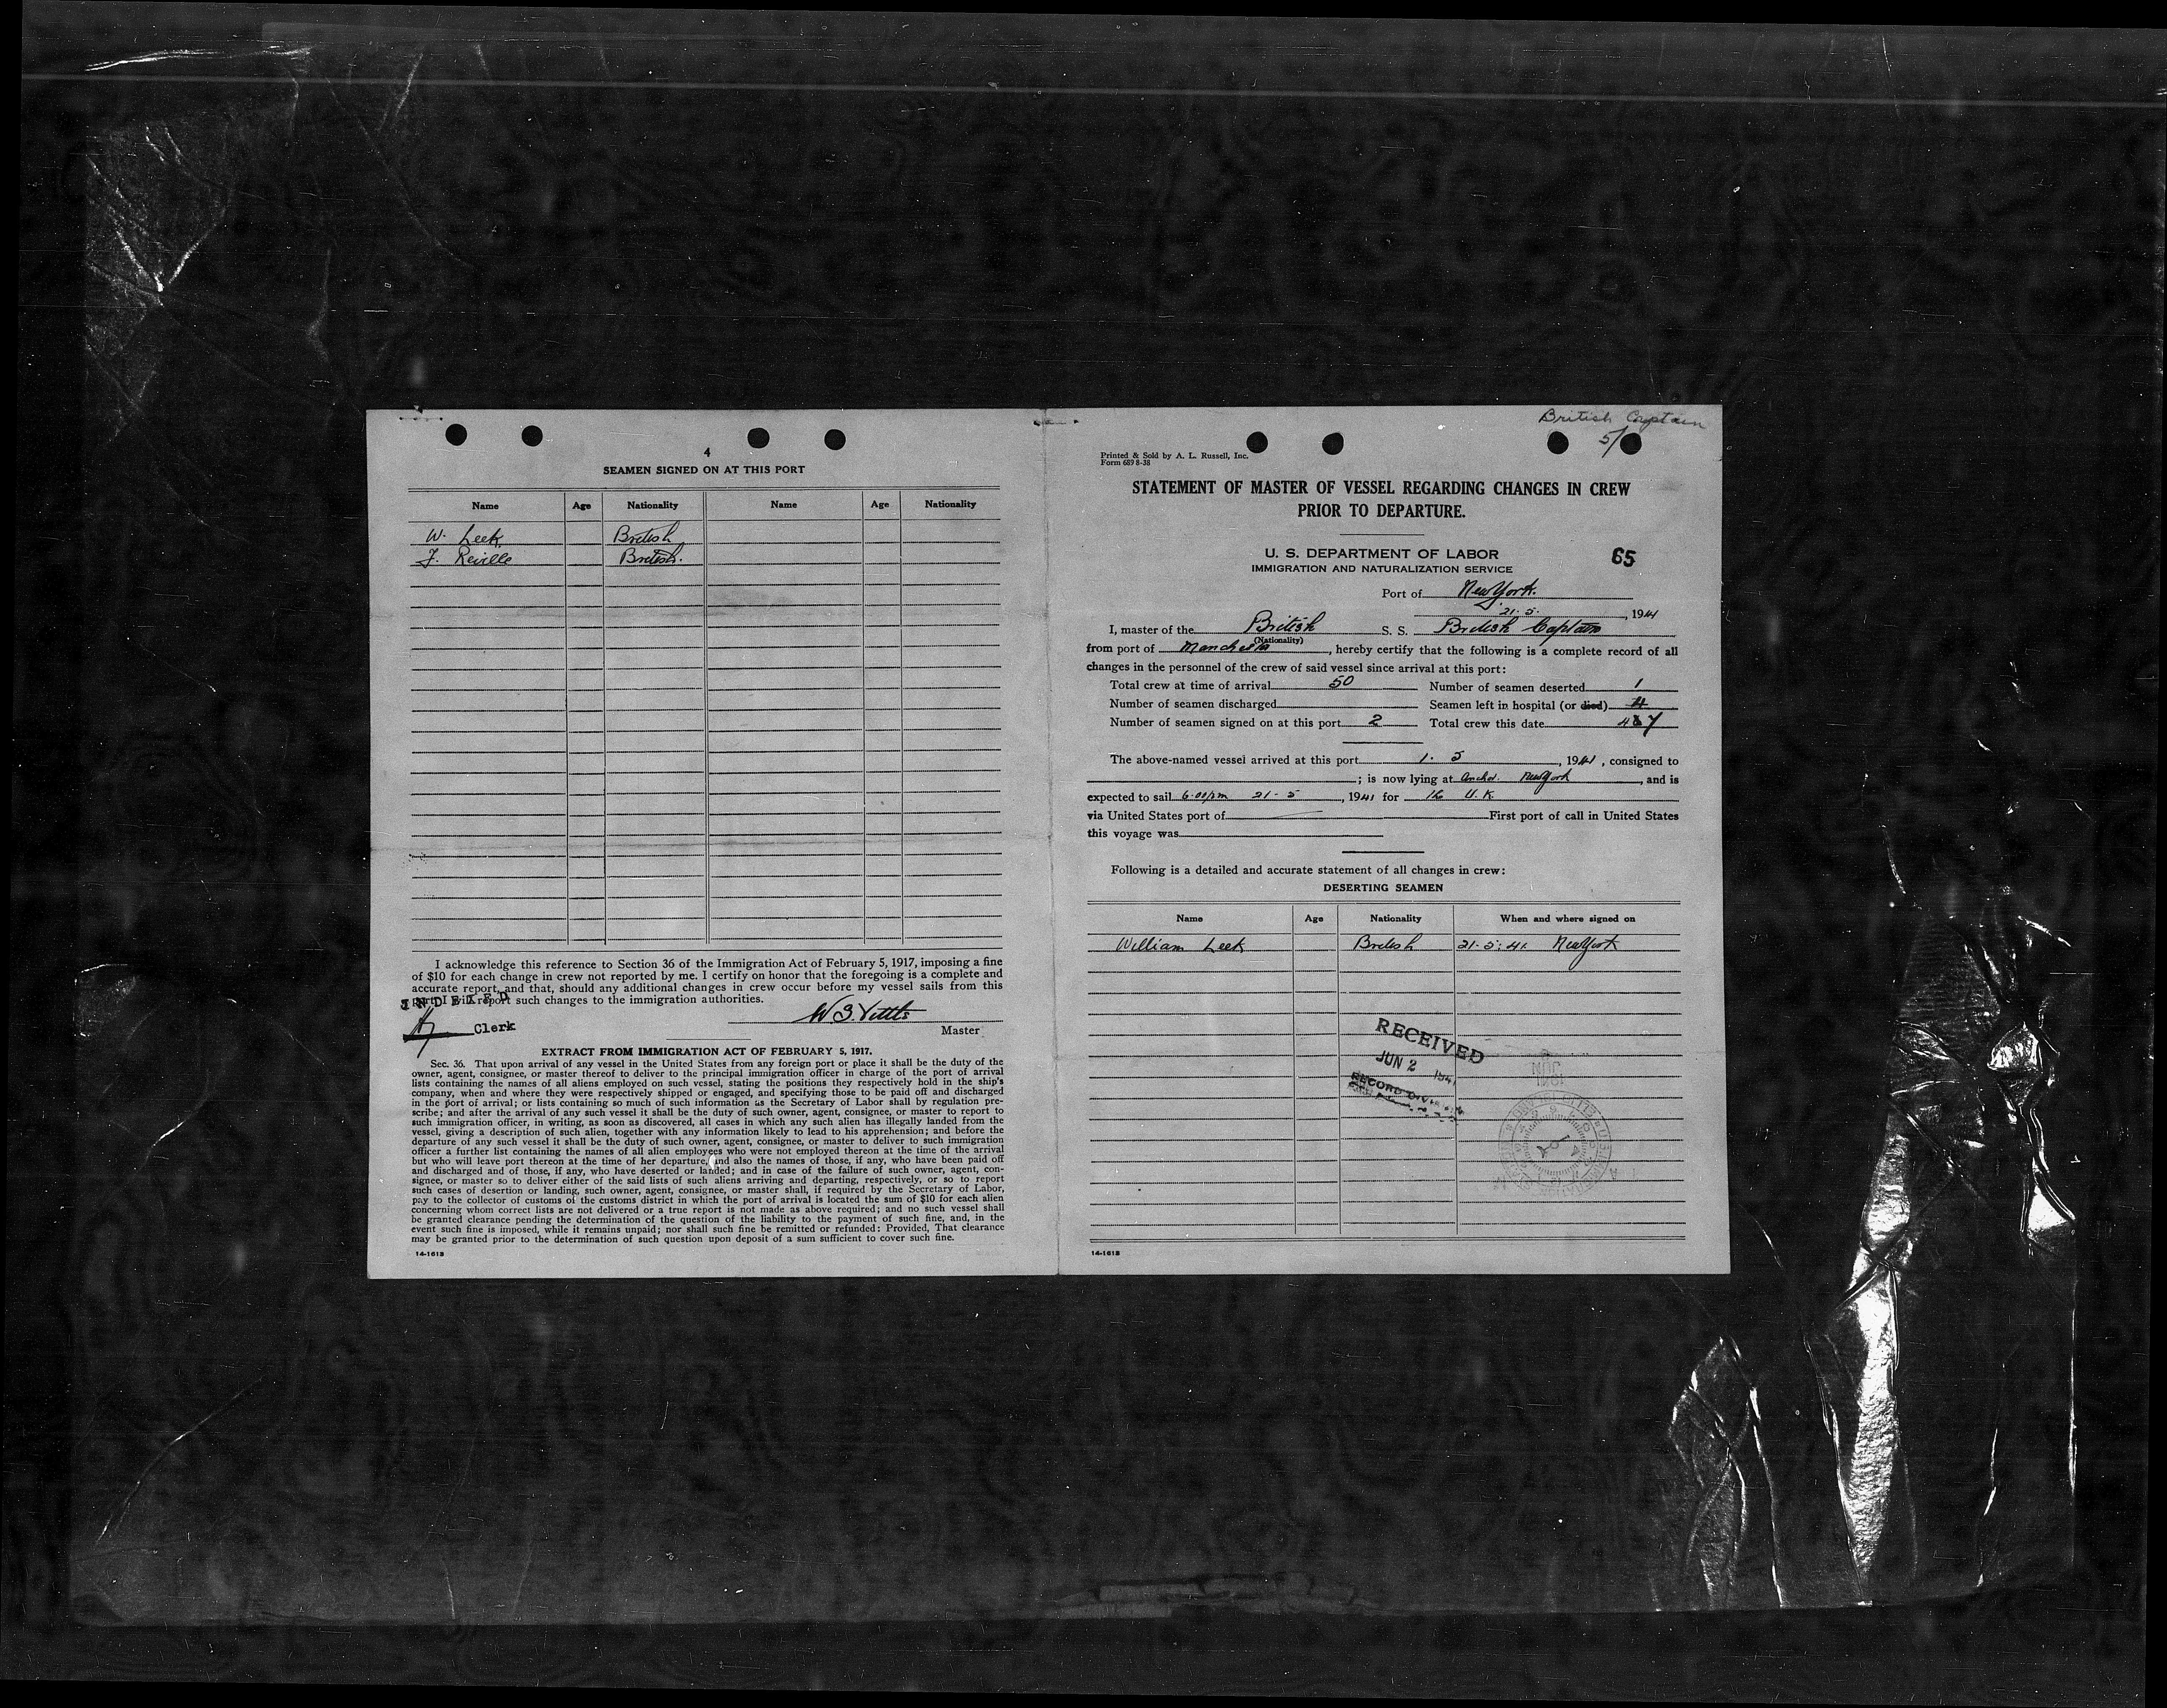 4
SEAMEN SIGNED ON AT THIS PORT
Name Age Nationality Name Age Nationality
W. Leek British
F. Reville British.
I acknowledge this reference to Section 36 of the Immigration Act of February 5, 1917, imposing a fine
of $10 for each change in crew not reported by me. I certify on honor that the foregoing is a complete and
accurate report, and that, should any additional changes in crew occur before my vessel sails from this
port, I will report such changes to the immigration authorities.
INDEXED
Clerk
Master
EXTRACT FROM IMMIGRATION ACT OF FEBRUARY 5, 1917.
Sec. 36. That upon arrival of any vessel in the United States from any foreign port or place it shall be the duty of the
owner, agent, consignee, or master thereof to deliver to the principal immigration officer in charge of the port of arrival
lists containing the names of all aliens employed on such vessel, stating the positions they respectively hold in the ship's
company, when and where they were respectively shipped or engaged, and specifying those to be paid off and discharged
in the port of arrival; or lists containing so much of such information as the Secretary of Labor shall by regulation pre-
scribe; and after the arrival of any such vessel it shall be the duty of such owner, agent, consignee, or master to report to
such immigration officer, in writing, as soon as discovered, all cases in which any such alien has illegally landed from the
vessel, giving a description of such alien, together with any information likely to lead to his apprehension; and before the
departure of any such vessel it shall be the duty of such owner, agent, consignee, or master to deliver to such immigration
officer a further list containing the names of all alien employees who were not employed thereon at the time of the arrival
but who will leave port thereon at the time of her departure, and also the names of those, if any, who have been paid off
and discharged and of those, if any, who have deserted or landed; and in case of the failure of such owner, agent, con-
signee, or master so to deliver either of the said lists of such aliens arriving and departing, respectively, or so to report
such cases of desertion or landing, such owner, agent, consignee, or master shall, if required by the Secretary of Labor,
pay to the collector of customs of the customs district in which the port of arrival is located the sum of $10 for each alien
concerning whom correct lists are not delivered or a true report is not made as above required; and no such vessel shall
be granted clearance pending the determination of the question of the liability to the payment of such fine, and, in the
event such fine is imposed, while it remains unpaid; nor shall such fine be remitted or refunded: Provided, That clearance
may be granted prior to the determination of such question upon deposit of a sum sufficient to cover such fine.
14-1613
British Captain
5/
Printed & Sold by A. L. Russell, Inc.
Form 689 8-38
STATEMENT OF MASTER OF VESSEL REGARDING CHANGES IN CREW
PRIOR TO DEPARTURE.
U. S. DEPARTMENT OF LABOR
IMMIGRATION AND NATURALIZATION SERVICE
65
Port of New York.
21.5. , 1941
I, master of the British S. S. British Captain
(Nationality)
from port of Manchester , hereby certify that the following is a complete record of all
changes in the personnel of the crew of said vessel since arrival at this port:
Total crew at time of arrival 50 Number of seamen deserted 1
Number of seamen discharged Seamen left in hospital (or died) 4
Number of seamen signed on at this port 2 Total crew this date 47
The above-named vessel arrived at this port 1. 5 , 1941 , consigned to
; is now lying at Anchor. New York , and is
expected to sail 6.00 pm 21-5 , 1941 for U.K.
via United States port of First port of call in United States
this voyage was
Following is a detailed and accurate statement of all changes in crew:
DESERTING SEAMEN
Name Age Nationality When and where signed on
William Leek British 21.5.41. New York
RECEIVED
JUN 2 1941
RECORD DIVISION
14-1613